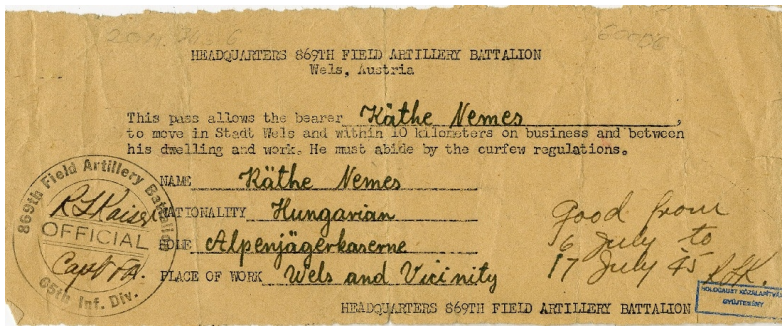 HEADQUARTERS 869TH FIELD ARTILLERY BATTALION
Wels, Austria
This pass allows the bearer Käthe Nemes,
to move in Stadt Wels and within 10 kilometers on business and between
his dwelling and work. He must abide by the curfew regulations.
NAME Käthe Nemes
NATIONALITY Hungarian
Alpenjägerkaserne
PLACE OF WORK Wels and Vicinity
HEADQUARTERS 869TH FIELD ARTILLERY BATTALION
869th Field Artillery Battalion
R L Kaiser
OFFICIAL
Capt FA.
65th Inf. Div.
Good from
6 July to
17 July 45
RLK.
HOLOCAUST KÖZALAPÍTVÁNY
GYŰJTEMÉNY